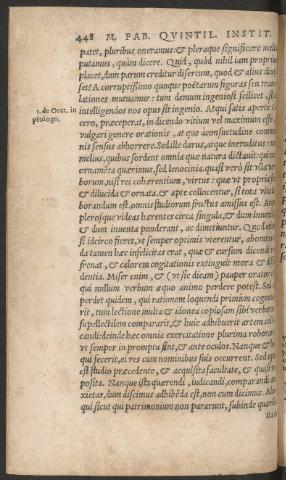 448 M. FAB. QVINTIL. INSTIT.
patet, pluribus oneramus: & pleraque significare melius
putamus, quàm dicere. Quid, quòd nihil iam proprium
placet, dum parum creditur disertum, quod & alius dixis
set? A corruptissimo quoque poëtarum figuras seu trans
lationes mutuamur: tum demum ingeniosi scilicet, si ad
intelligendos nos opus sit ingenio. Atqui satis apertè Ci
1. de Orat. in
prologo,
cero, præceperat, in dicendo vitium vel maximum esse, à
vulgari genere orationis, atque à consuetudine commu
nis sensus abhorrere. Sed ille durus, atque ineruditus: nos
melius, quibus sordent omnia quæ natura dictauit: qui non
ornamẽta quærimus, sed lenocinia. quasi verò sit vlla ver
borum, nisi rei cohærentium, virtus: quæ vt propria sint
& dilucida & ornata & aptè collocentur, si tota vita la
borandum est, omnis studiorum fructus amissus est. Atqui
plerosque videas hærentes circa singula, & dum inueniunt,
& dum inuenta ponderant, ac dimetiuntur. Quod etiam
si idcirco fieret, vt semper optimis vterentur, abominan
da tamen hæc infelicitas erat, quæ & cursum dicendi re
frenat, & calorem cogitationis extinguit mora & diffi
dentia. Miser enim, & (vt sic dicam) pauper orator est,
qui nullum verbum æquo animo perdere potest. Sed nec
perdet quidem, qui rationem loquendi primùm cognoue
rit, tum lectione multa & idonea copiosam sibi verborum
supellectilem compararit, & huic adhibuerit artem collo
candi: deinde hæc omnia exercitatione plurima roborarit,
vt semper in promptu sint, & ante oculos. Nanque ei
qui fecerit, ei res cum nominibus suis occurrent. Sed opus
est studio præcedente, & acquisita facultate, & quasi re
posita. Nanque ista quærendi, iudicandi, comparandi an
xietas, dum discimus adhibẽda est, non cum dicimus. Alio
qui sicut qui patrimonium non pararunt, subinde quærunt: